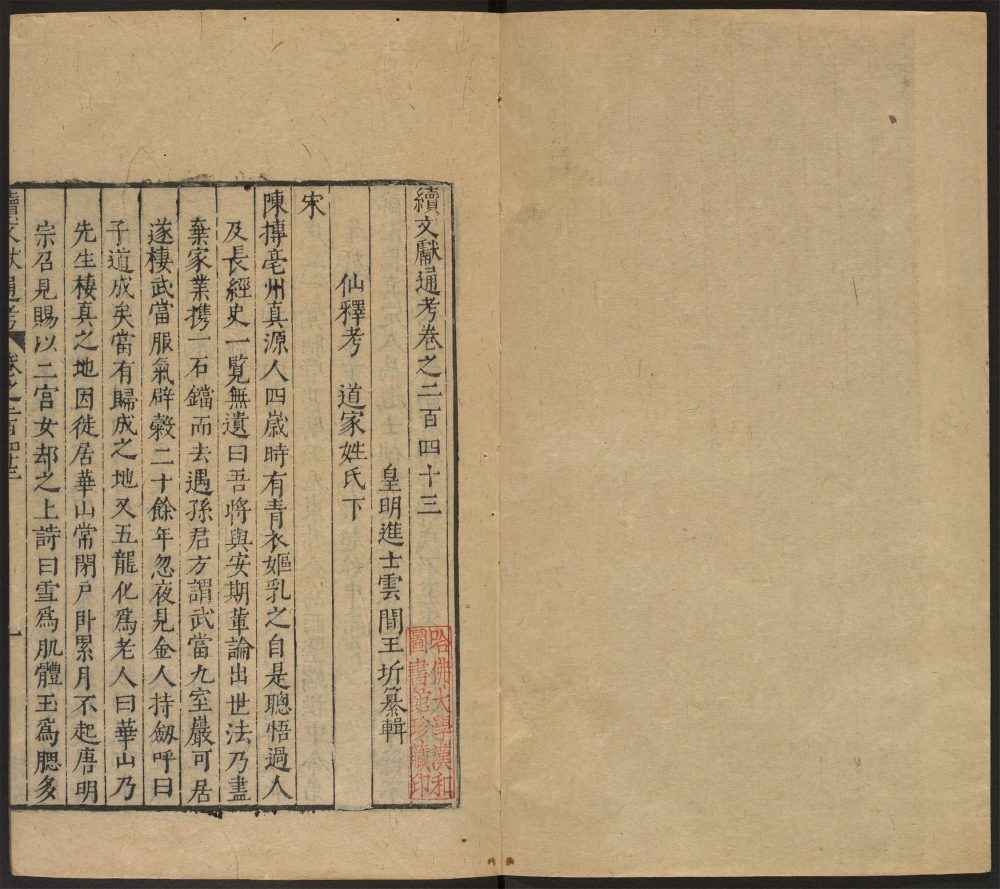 續文獻通考卷之二百四十三
皇明進士雲間王圻纂輯
仙釋考 道家姓氏下
宋
陳摶亳州真源人四歲時有青衣嫗乳之自是聰悟過人
及長經史一覧無遺曰吾將與安期軰論出世法乃盡
棄家業携一石鐺而去遇孫君方謂武當九室巖可居
遂棲武當服氣辟榖二十餘年忽夜見金人持劔呼曰
子道成矣當有歸成之地又五龍化爲老人曰華山乃
先生棲真之地因徙居華山常閉戸卧累月不起唐明
宗召見賜以二宫女却之上詩曰雪爲肌體玉爲腮多
續文獻通考 卷之二百四十三
一
哈佛大學漢和
圖書館珍藏印